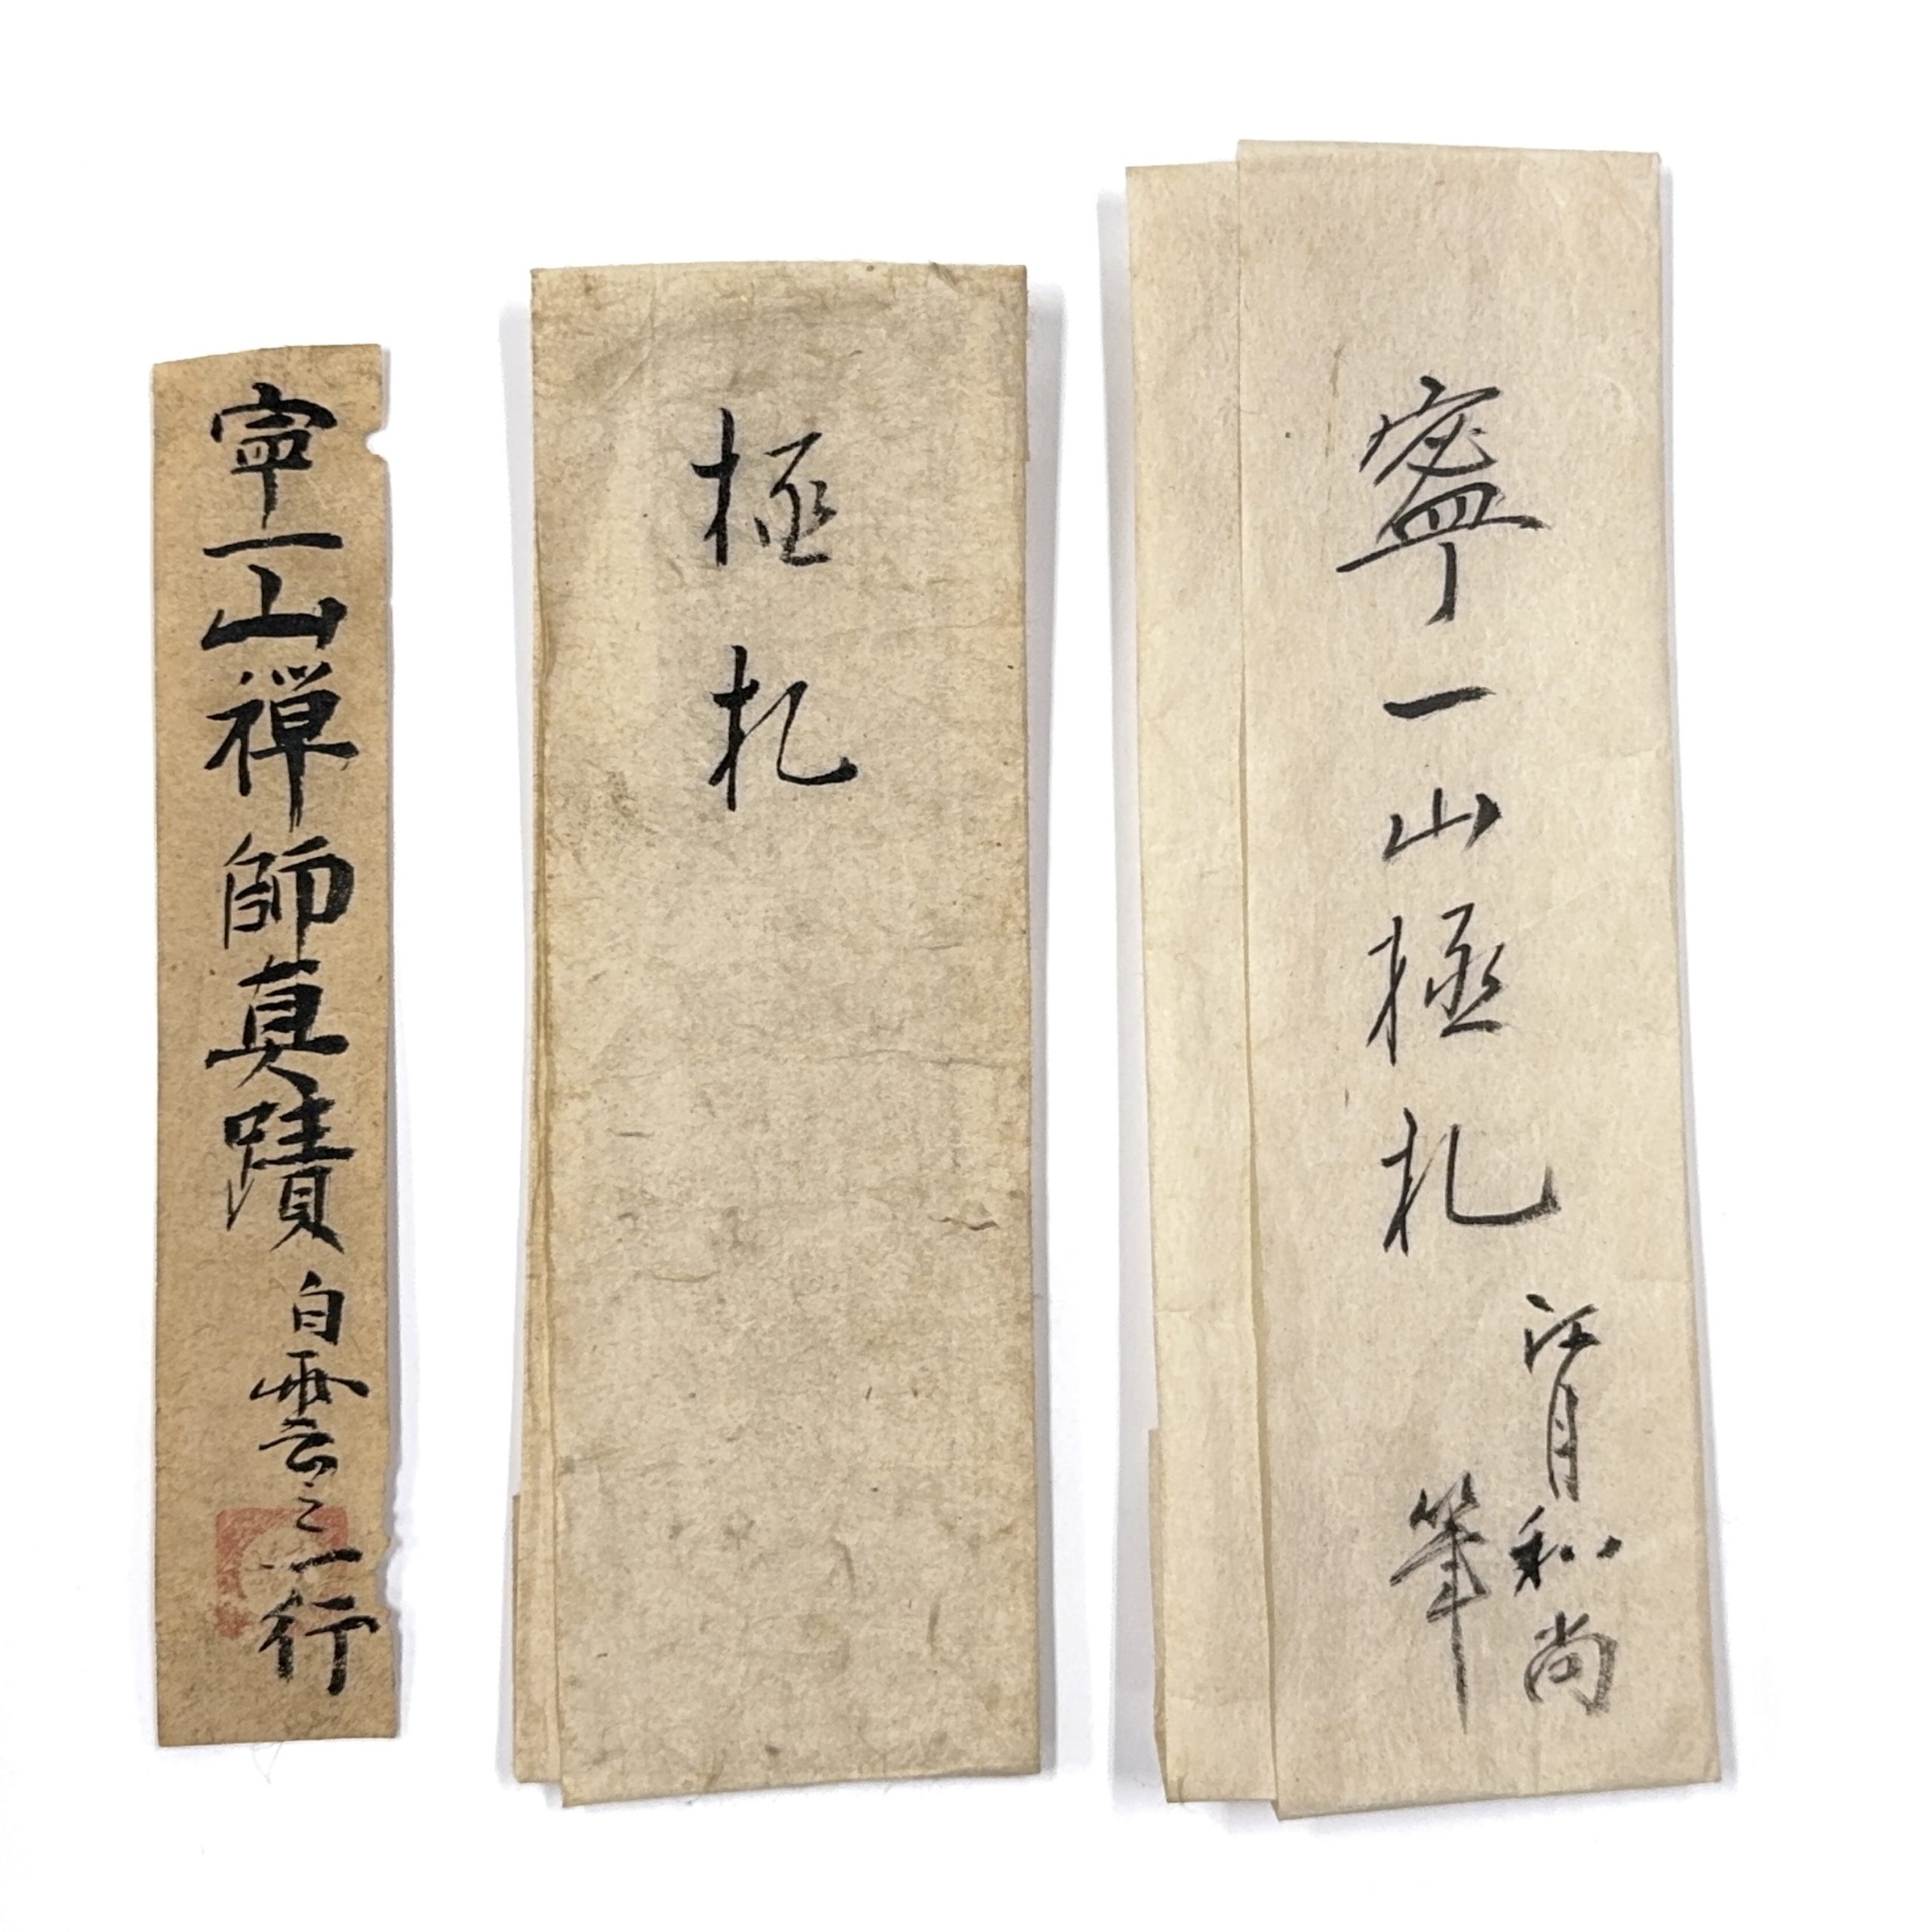 寧一山禅師真蹟 白雲之一行
極札
寧一山極札
江月和尚
筆